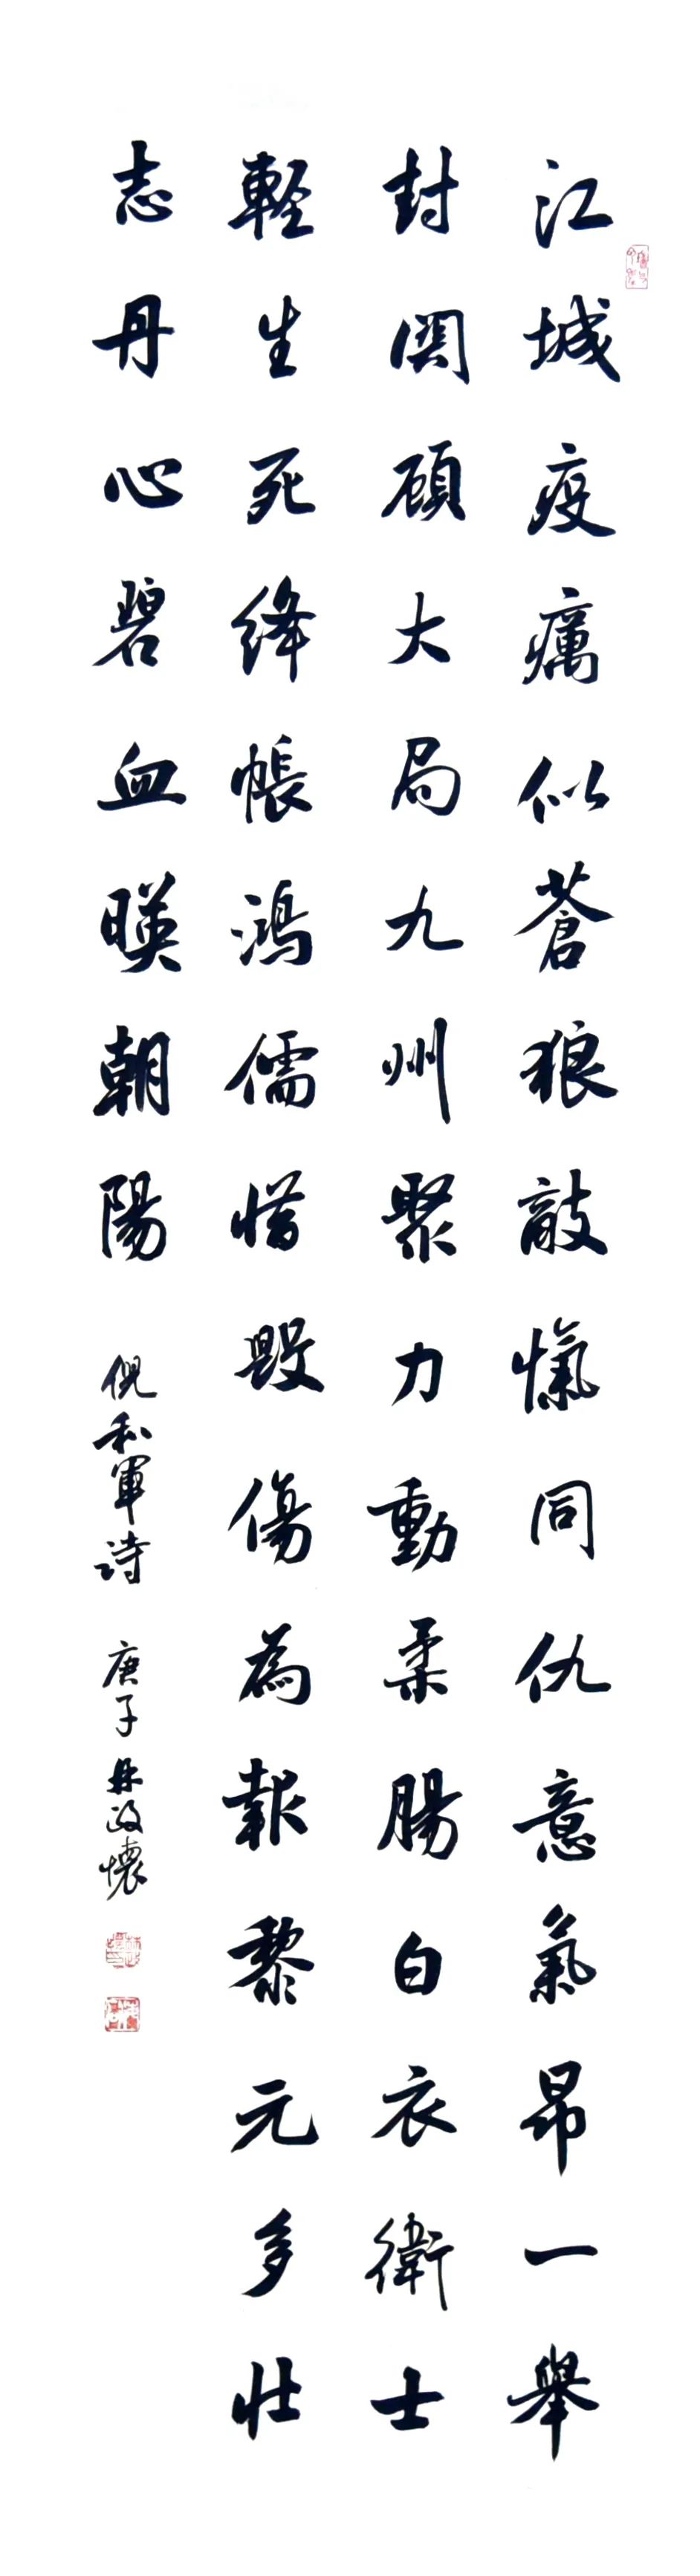 江城疫癘似蒼狼敵愾同仇意氣昂一舉
封関顧大局九州聚力動柔腸白衣衛士
輕生死絳帳鴻儒惜毀傷為報黎元多壯
志丹心碧血暎朝陽
倪和軍詩 庚子 林政懷